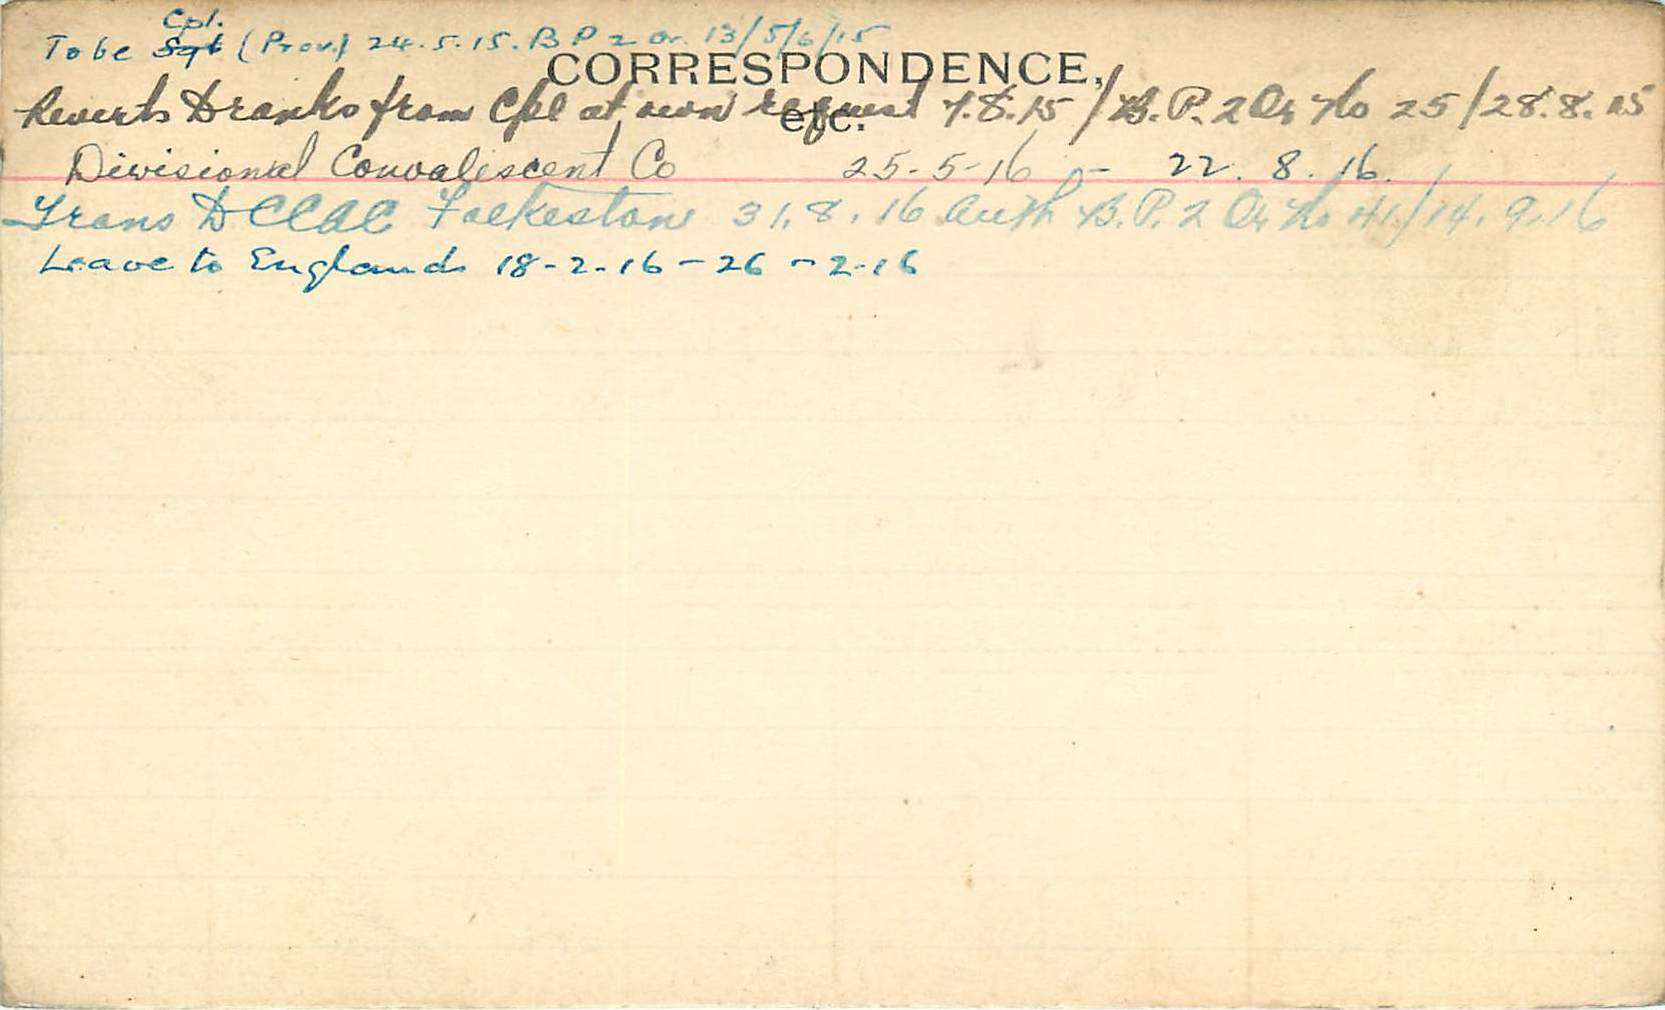 Cpl.
To be Sgt (Prov.) 24.5.15. B P 2 Or. 13/5/6/15
CORRESPONDENCE,
etc.
Reverts to ranks from Cpl at own request 7.8.15 / B. P. 2 Or No 25/28.8.15
Divisional Convalescent Co 25-5-16 - 22. 8. 16.
Trans to CCAC Folkestone 31.8.16 Auth B.P. 2 Or No 41/14.9.16
Leave to England 18-2-16 - 26-2-16